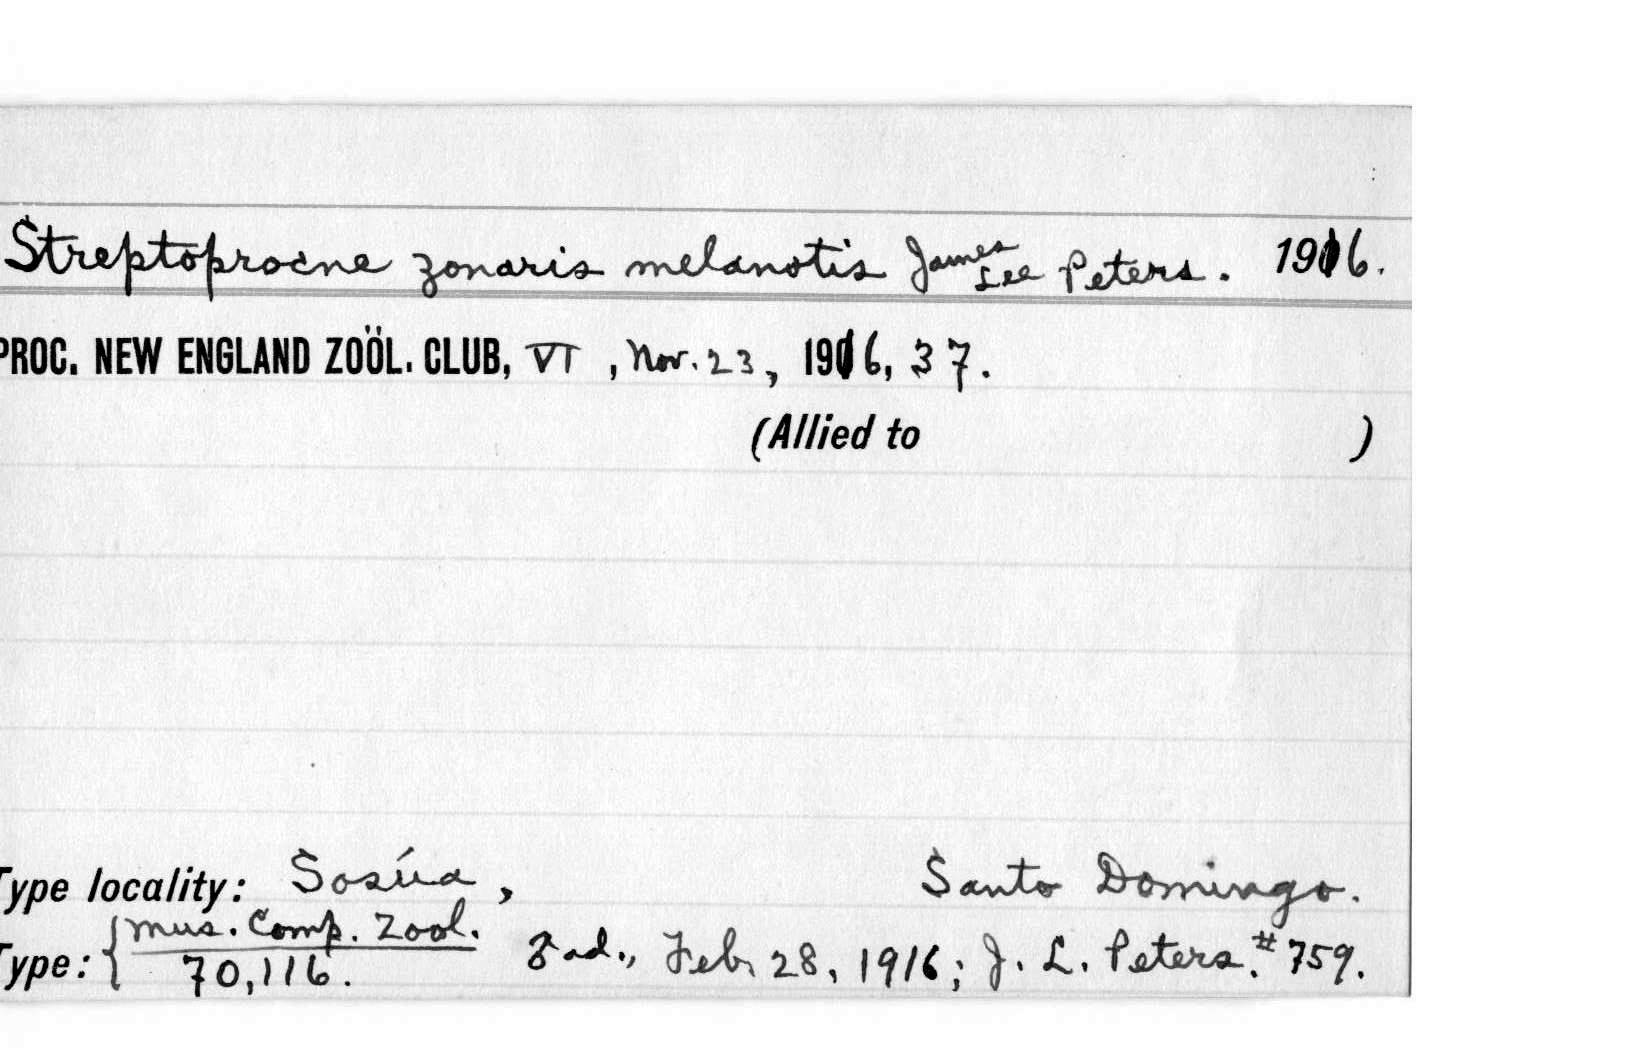 Streptoprocne zonaris melanotis James Lee Peters. 1916.
PROC. NEW ENGLAND ZOÖL. CLUB, VI, Nov. 23, 1916, 37.
(Allied to )
Type locality: Sosúa, Santo Domingo.
Type: { Mus. Comp. Zool. 70,116. ad., Feb. 28, 1916; J. L. Peters. #759.